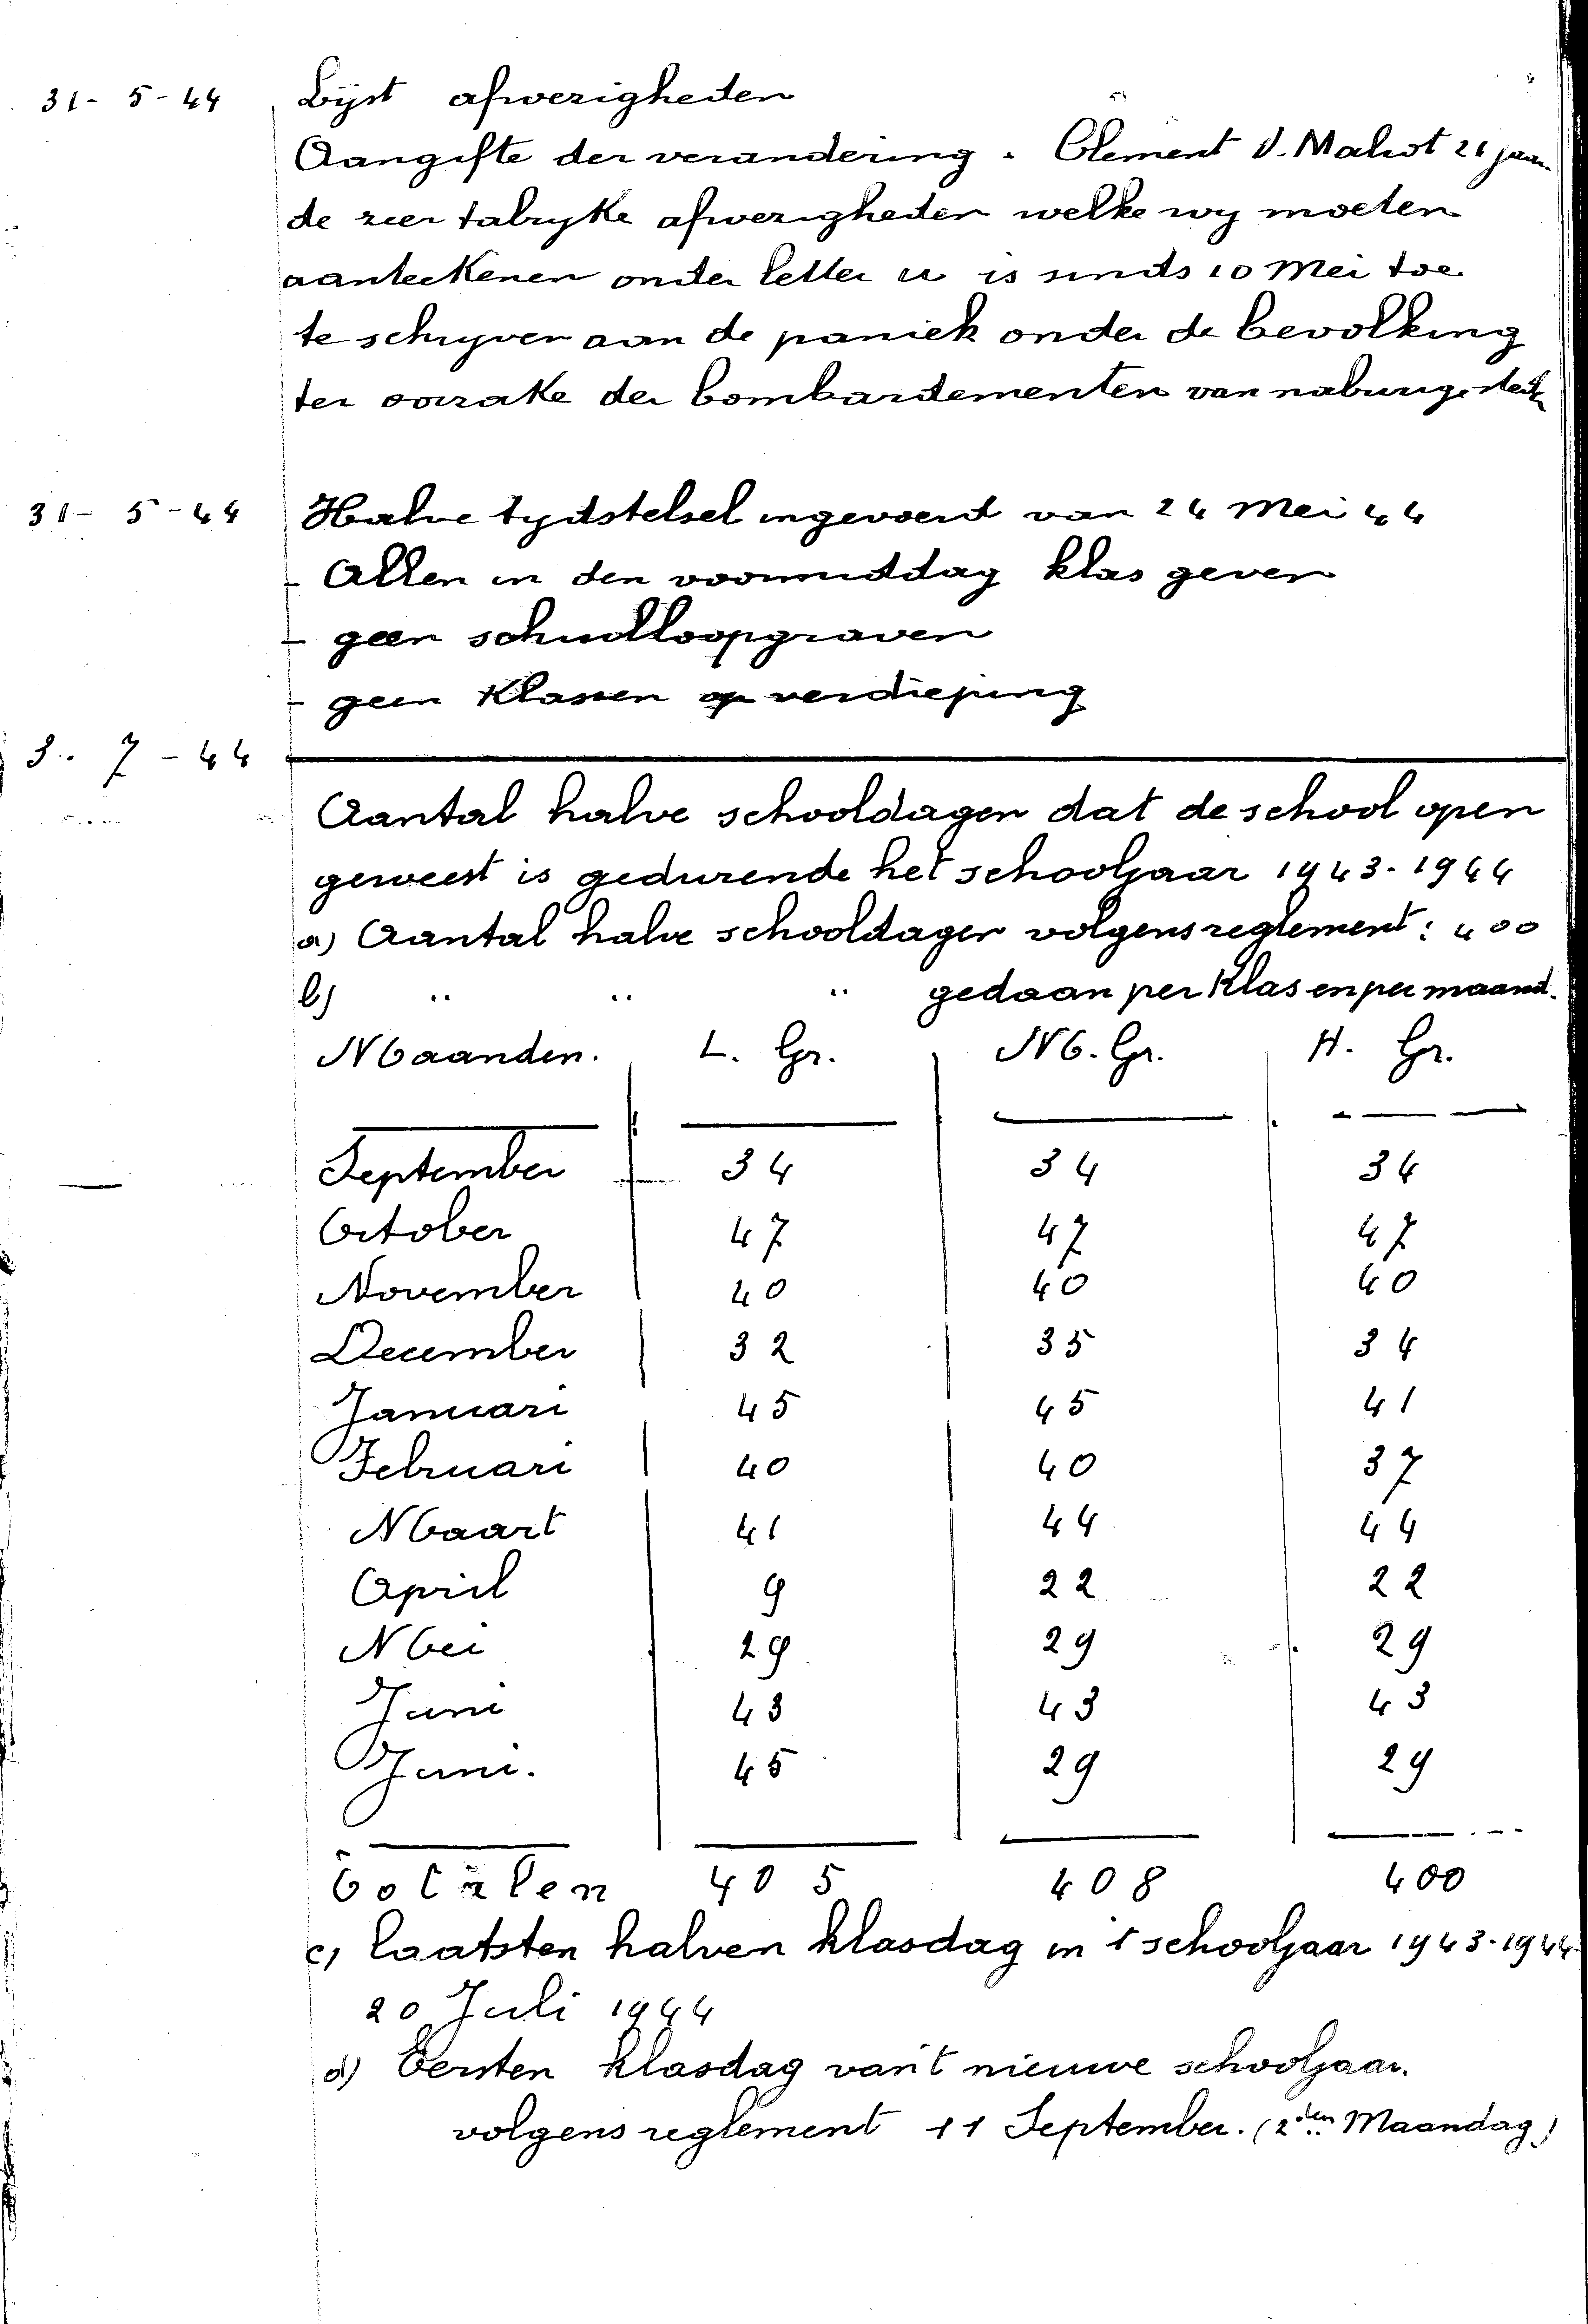 31-5-44 Lijst afwezigheden
Aangifte der verandering. Clement V. Mahot 21 jaar
de zeer talryke afwezigheden welke wy moeten
aanteekenen onder letter u is sinds 10 Mei toe
te schryven aan de paniek onder de bevolking
ter oorzake der bombardementen van naburige steden
31-5-44 Halve tydstelsel ingevoerd van 24 Mei 44
- Allen in den voormiddag klas geven
- geen schuilloopgraven
- geen Klassen op verdieping
3. 7-44
Aantal halve schooldagen dat de school open
geweest is gedurende het schooljaar 1943-1944
a) Aantal halve schooldagen volgens reglement: 400
b) " " " gedaan per Klas en per maand.
Maanden. L. Gr. M. Gr. H. Gr.
September 34 34 34
October 47 47 47
November 40 40 40
December 32 35 34
Januari 45 45 41
Februari 40 40 37
Maart 41 44 44
April 9 22 22
Mei 29 29 29
Juni 43 43 43
Juni. 45 29 29
Totalen 405 408 400
c) laatsten halven klasdag in 't schooljaar 1943-1944
20 Juli 1944
d) Eersten klasdag van't nieuwe schooljaar.
volgens reglement 11 September. (2den Maandag)